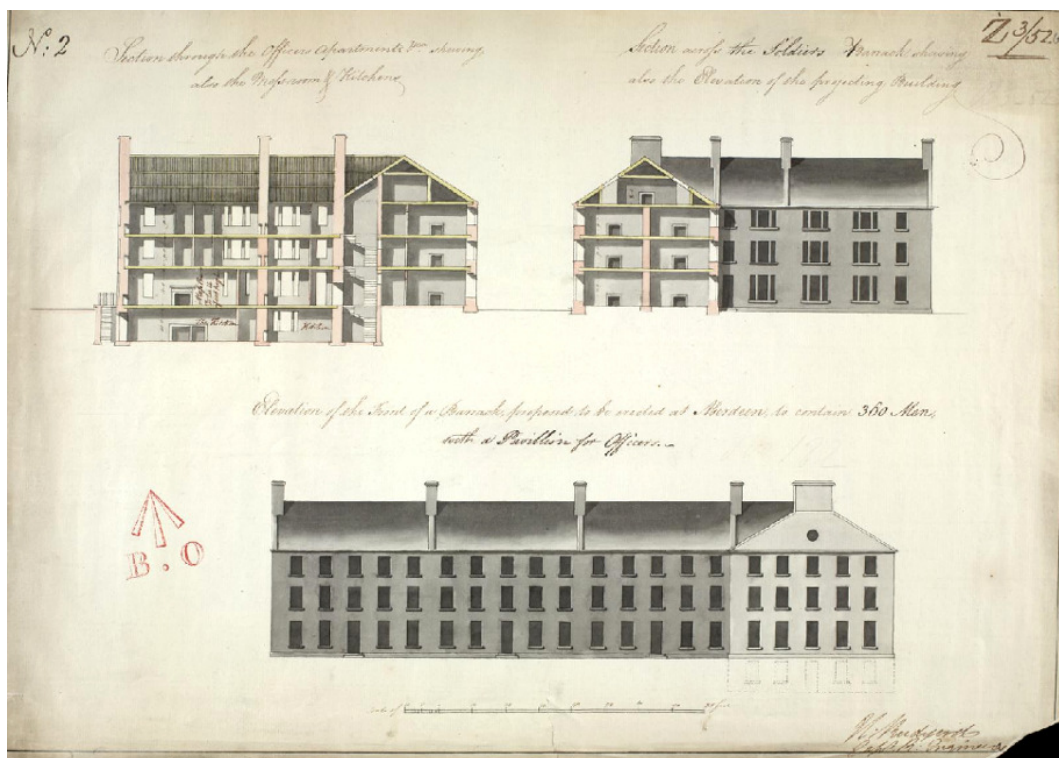 N.º 2
Section through the Officers Apartments &c. shewing
also the Messroom & Kitchens
Section across the Soldiers Barrack shewing
also the Elevation of the projecting Building
Z 3/52
Elevation of the Front of a Barrack, proposed to be erected at Aberdeen, to contain 360 Men,
with a Pavillion for Officers.
B.O
Kitchen
Scale of
R: Engineers